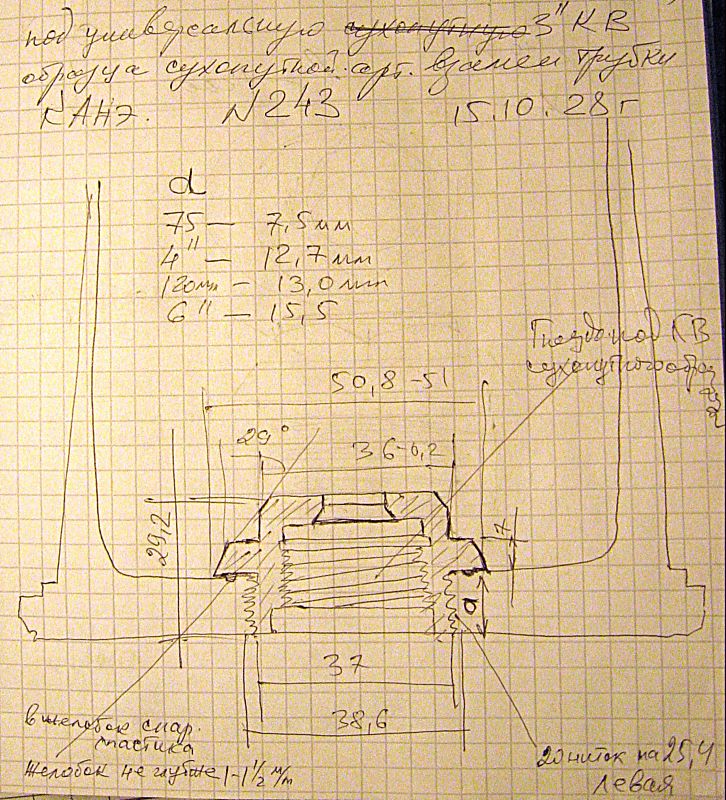 под универсальную сухопутную 3" КВ
образца сухопутной арт. взамен трубки
КАНЭ. N243 15.10.28г
d
75 — 7,5мм
4" — 12,7мм
120мм — 13,0мм
6" — 15,5
Гнездо под КВ
сухопутного образца
50,8-51
29°
36-0,2
29,2
7
d
37
38,6
в желобок снар.
пластика
Желобок не глубже 1-1½ м/m
20 ниток на 25,4
левая